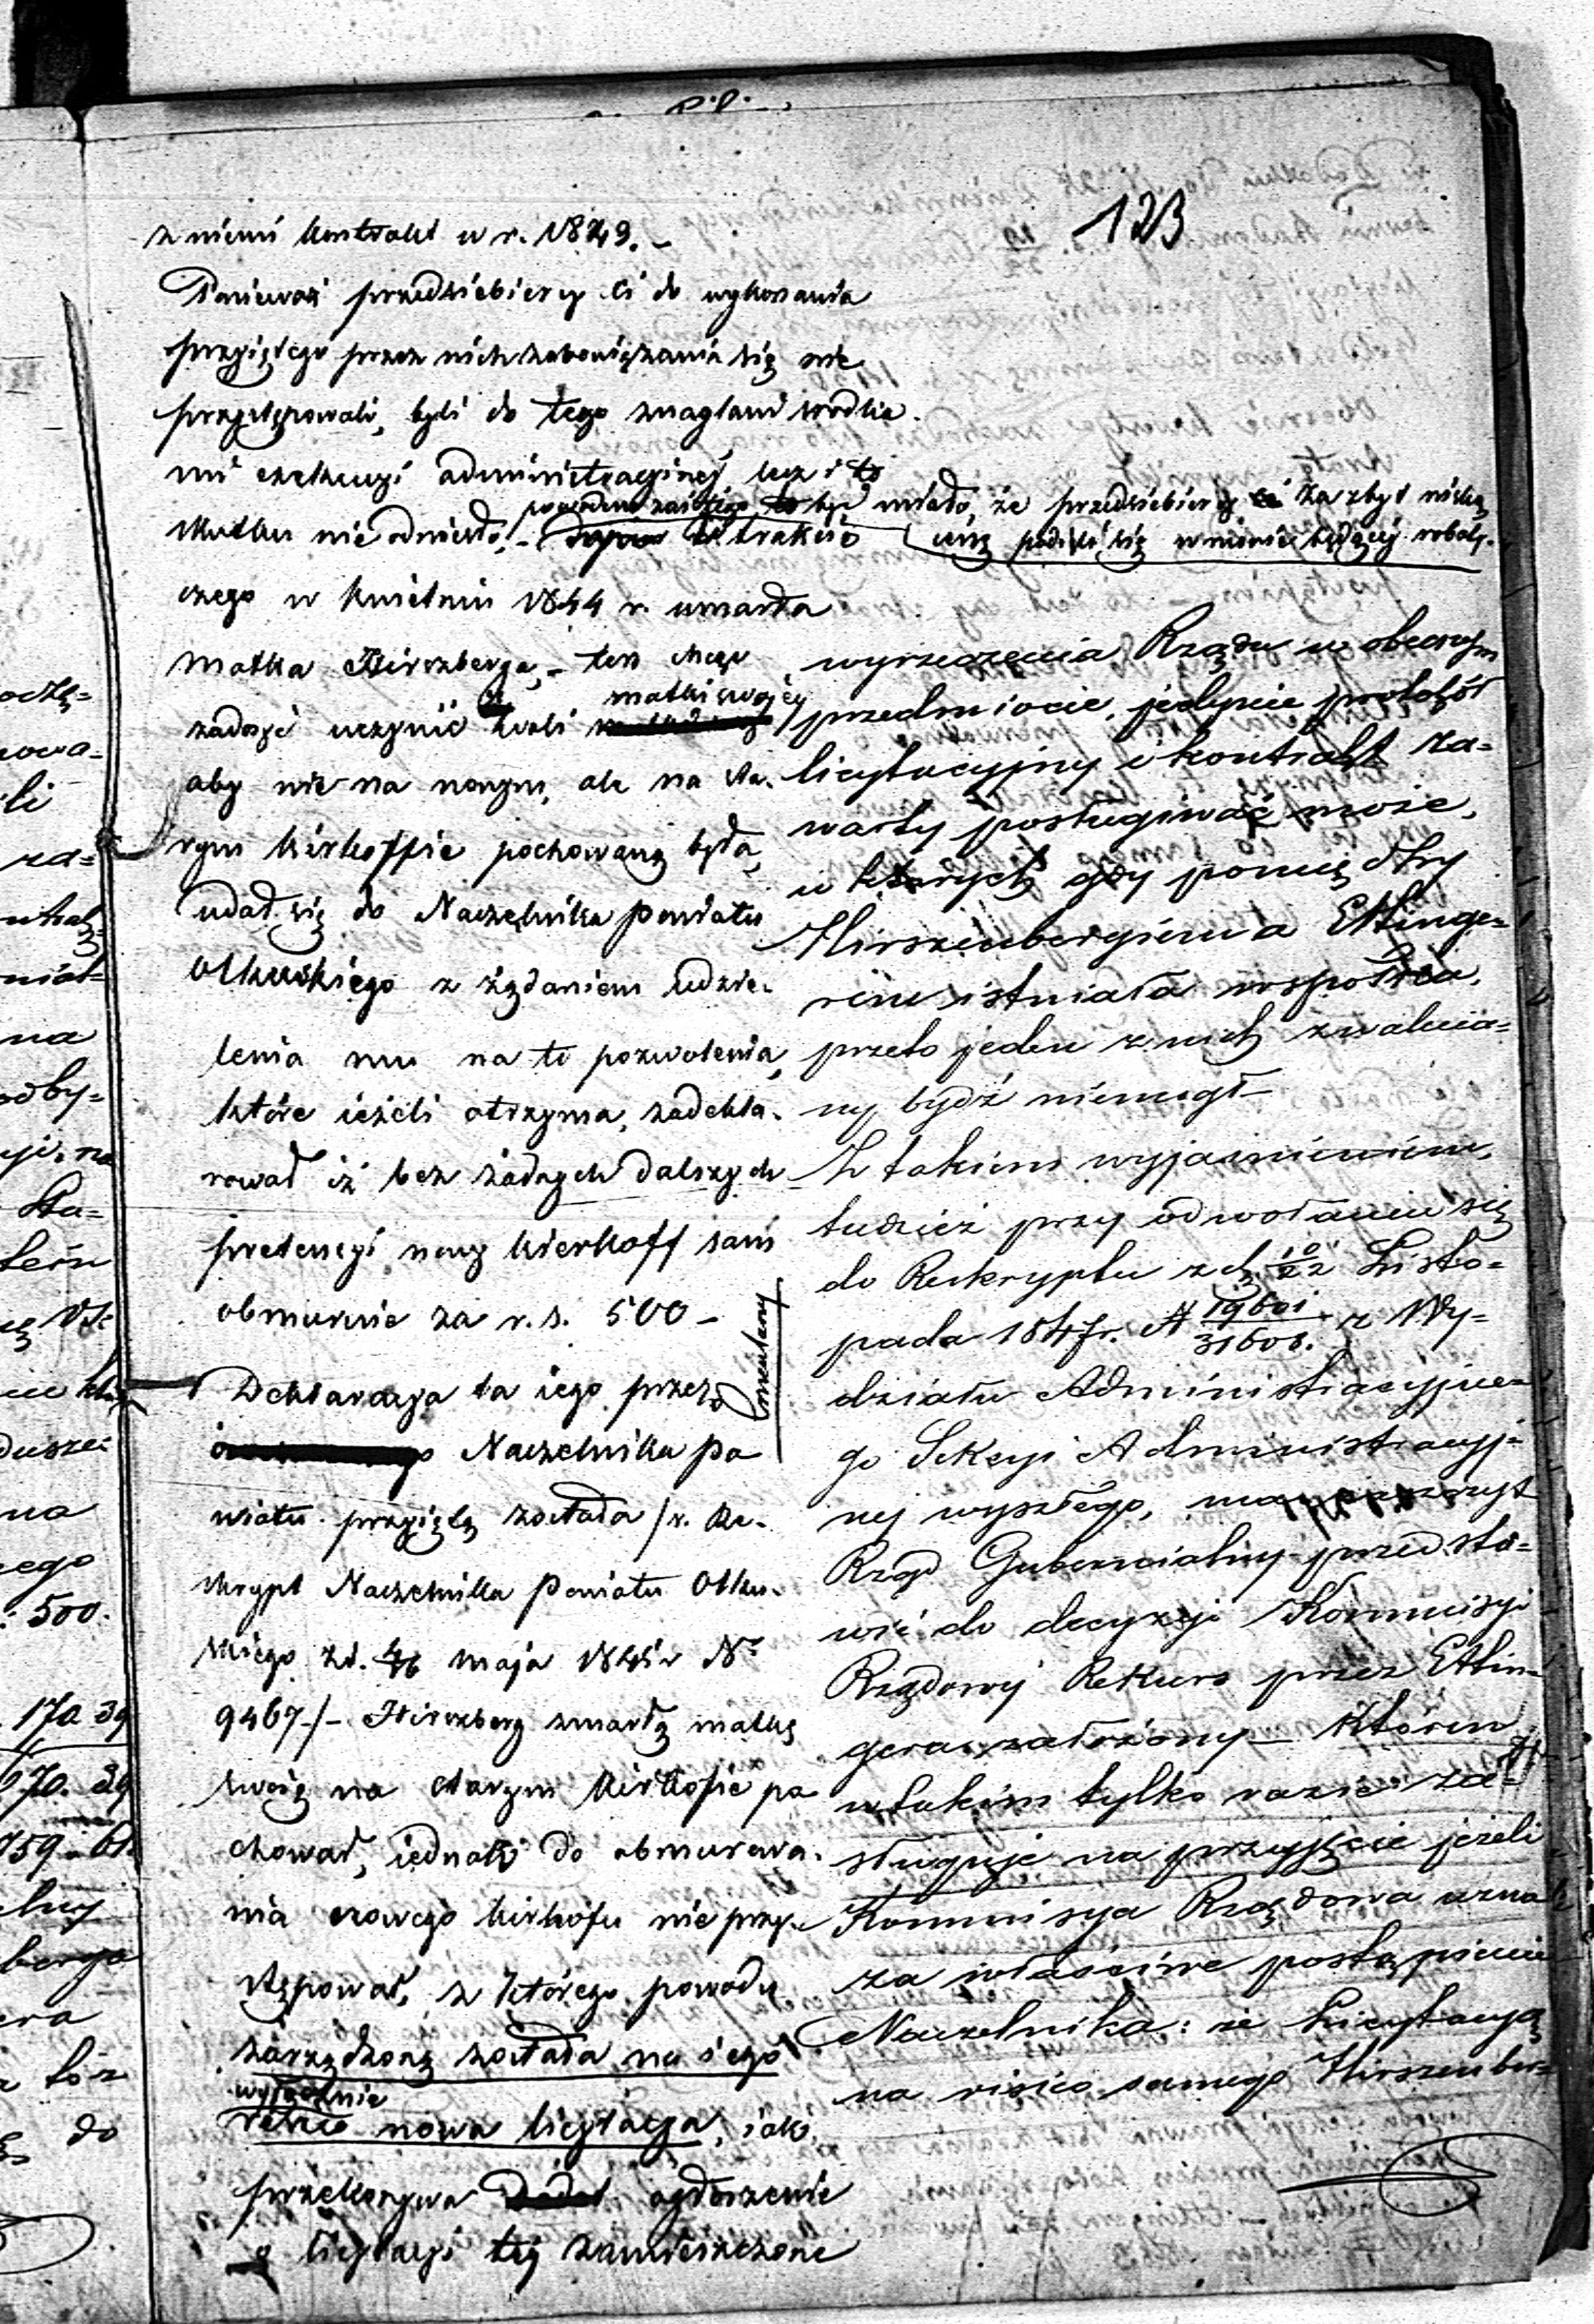 123
z niemi kontrakt w r. 1843. –
Ponieważ przedsiebiercy ci do wykonania
przyiętego przez nich zobowiązania się nie
przystępowali, byli do tego znaglani środka-
mi exekucyi administracyinej, lecz i to
skutku nie odniosło, – powodem zaś tego być miało, że przedsiebiercy za zbyt nizką
cenę podieli się w mowie będącéj roboty.
W trakcie
czego w kwietniu 1844 r. umarła
matka Hirszberga, – ten chcąc
zadosyć uczynić woli matki swojéj
aby nie na nowym, ale na sta-
rym kirkoffie pochowaną była,
udał się do Naczelnika Powiatu
Olkuskiego z żądaniem udzie-
lenia mu na to pozwolenia,
które ieżeli otrzyma, zadekla-
rował iż bez żadnych dalszych
pretensyi nowy kierkoff sam
obmuruie za r. s. 500 –
Deklaracya ta iego przez
Naczelnika Po
wiatu przyiętą została /v. Re-
skrypt Naczelnika Powiatu Olku-
skiego z d. 4/16 Maja 1845 r N°
9467/– Hirszberg zmarłą matkę
swoię na starym kirkofie po
chował, iednak do obmurowa-
nia nowego kirkofu nie przy-
stępował, z którego powodu
zarządzoną została na iego
wyłącznie
retico nowa licytacya, iak
przekonywa ogłoszenie
o licytacyi téj zamieszczone
wyrzeczenia Rządu w obecnym
przedmiocie, jedynie protokół
licytacyjny i kontrakt za-
warty posługiwać może,
w których gdy pomiędzy
Hirszenbergiem a Ettinge-
rem istniała wspólka,
przeto jeden z nich zwalnia-
ny bydź niemógł –
Z takiem wyjaśnieniem,
tudzież przy odwołaniu się
do Reskryptu z d. 10/22 Listo-
pada 1847 r. N 19601/31608. z Wy-
działu Administracyjne-
go Sekcyi Administracyj-
nej wyszłego, ma zaszczyt
Rząd Gubernialny przedsta-
wić do decyzyi Kommissyi
Rządowej Rekurs przez Ettin-
gera założony – który
w takim tylko razie za-
sługuje na przyjęcie jeżeli
Kommissya Rządowa uzna
za właściwe postąpienie
Naczelnika: że licytacya
na risico samego Hirszenber-